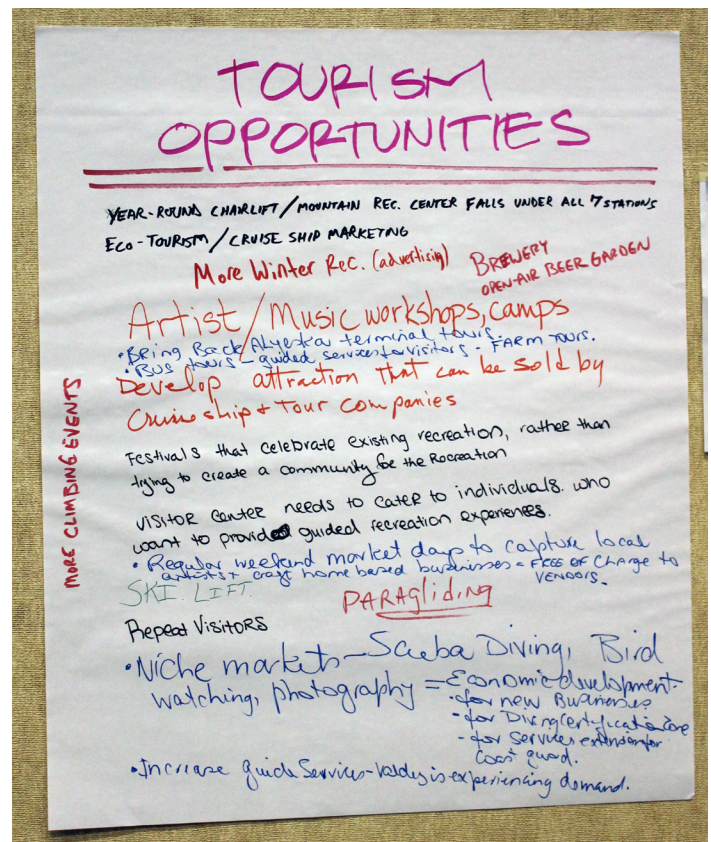 TOURISM
OPPORTUNITIES
YEAR-ROUND CHAIRLIFT/MOUNTAIN REC. CENTER FALLS UNDER ALL 7 STATIONS
ECO-TOURISM/CRUISE SHIP MARKETING
More Winter Rec. (advertising)
BREWERY
OPEN-AIR BEER GARDEN
Artist/Music workshops, camps
• Bring Back Alyeska terminal tours.
• BUS tours - guided services for visitors - FARM TOURS.
Develop attraction that can be sold by
Cruise ship + Tour companies
MORE CLIMBING EVENTS
Festivals that celebrate existing recreation, rather than
trying to create a community for the Rocreation
VISITOR CENTER needs to cater to individuals who
want to provide guided recreation experiences.
• Regular weekend market days to capture local
artists + craft home based businesses = FREE OF CHARGE to
VENDORS.
SKI LIFT.
PARAgliding
Repeat VISITORS
• Niche markets - Scuba Diving, Bird
watching, photography = Economic development
- for new Businesses
- for Diving certification
- for services extension for
Coast guard.
• Increase guide Services - Valdez is experiencing demand.